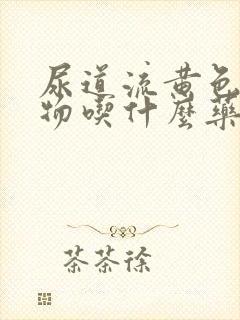 尿道流黄色
物喫什麼藥
茶茶徐